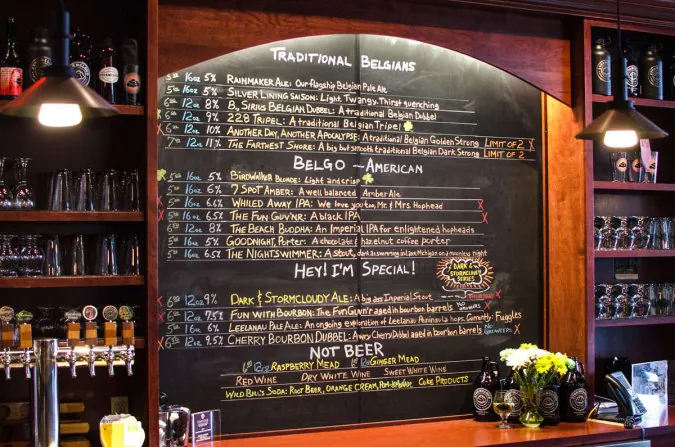 TRADITIONAL BELGIANS
16oz 5% RAINMAKER ALE: Our flagship Belgian Pale Ale
16oz 5% SILVER LINING SAISON: Light, Twangy, Thirst quenching
6⁰⁰ 12oz 8% B, SIRIUS BELGIAN DUBBEL: A traditional Belgian Dubbel
6⁰⁰ 12oz 9% 228 TRIPEL: A traditional Belgian Tripel
6⁰⁰ 12oz 10% ANOTHER DAY, ANOTHER APOCALYPSE: A traditional Belgian Golden Strong LIMIT OF 2 X
7⁰⁰ 12oz 11% THE FARTHEST SHORE: A big but smooth traditional Belgian Dark Strong LIMIT OF 2
BELGO-AMERICAN
16oz 5% BIRDWALKER BLONDE: Light and crisp
16oz 6% 7 SPOT AMBER: A well balanced Amber Ale
16oz 6.6% WHILED AWAY IPA: We love you too, Mr. & Mrs. Hophead
16oz 6.5% THE FUN GUV'NR: A black IPA
12oz 8% THE BEACH BUDDHA: An Imperial IPA for enlightened hopheads
16oz 5% GOODNIGHT, PORTER: A chocolate & hazelnut coffee porter
16oz 6.5% THE NIGHTSWIMMER: A stout, dark as swimming in Lake Michigan on a moonless night
HEY! I'M SPECIAL!
DARK & STORMCLOUDY SERIES
12oz 9% DARK & STORMCLOUDY ALE: A big ass Imperial Stout
12oz 7.5% FUN WITH BOURBON: The Fun Guv'nr aged in bourbon barrels NO GROWLERS
16oz 6% LEELANAU PALE ALE: An ongoing exploration of Leelanau Peninsula hops. Gummity: Fuggles
12oz 9.5% CHERRY BOURBON DUBBEL: A wry Cherry Dubbel aged in bourbon barrels NO GROWLERS
NOT BEER
RASPBERRY MEAD GINGER MEAD
RED WINE DRY WHITE WINE SWEET WHITE WINE
WILD BILL'S SODA: ROOT BEER, ORANGE CREAM, CORE PRODUCTS